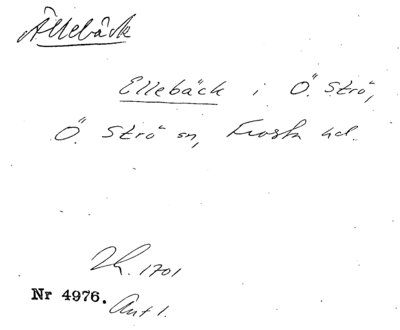 Ällebäck
Ellebäck i Ö. Strö,
Ö. Strö sn, Frosta hd.
Jb. 1701
Nr 4976. Ant 1.